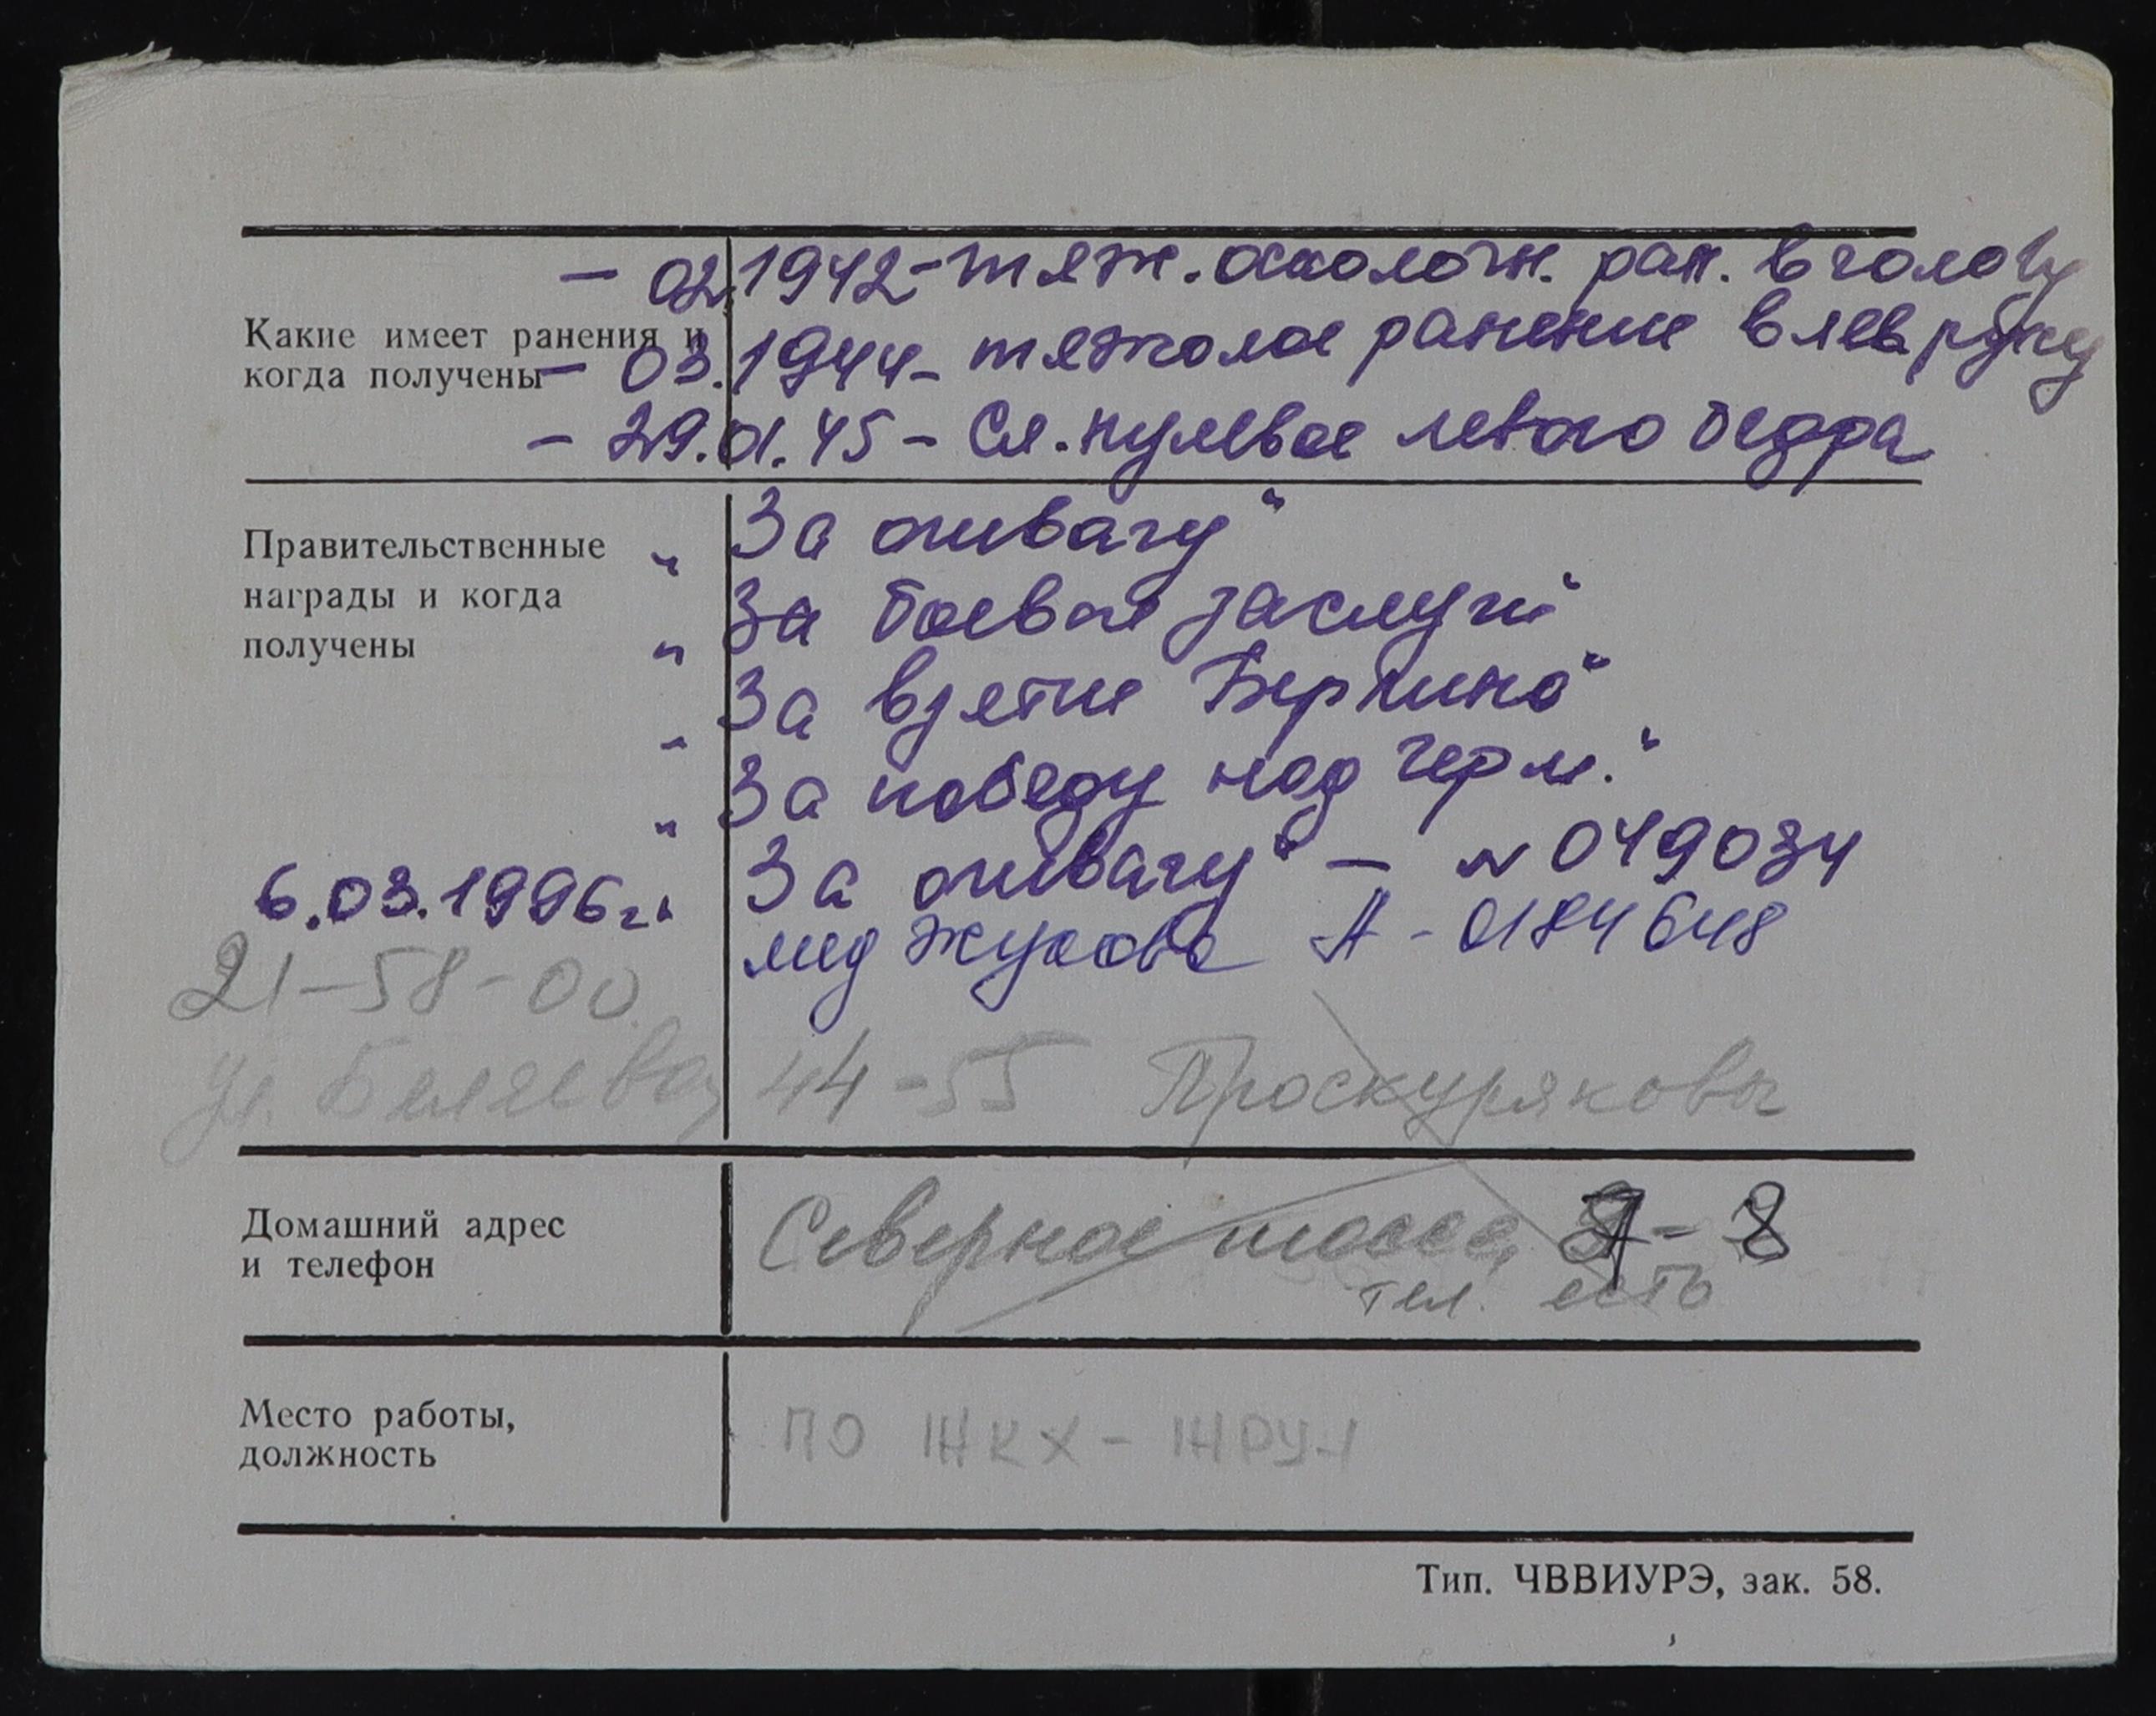 - 02.1942 - тяж. осколочн. ран. в голову
Какие имеет ранения и
- 03.1944 - тяжолое ранение в лев. руку
когда получены
- 29.01.45 - Сл. пулевое левого бедра
Правительственные
награды и когда
получены
„За отвагу“
„За боевые заслуги“
„За взятие Берлина“
„За победу над Герм.“
6.03.1996г. „За отвагу“ - № 049034
мед Жукова А - 0184648
21-58-00
ул. Беляева, 44-55 Проскуряковы
Домашний адрес
и телефон
Северное шоссе, - 8
тел. есть
Место работы,
должность
ПО ЖКХ - ЖРУ-1
Тип. ЧВВИУРЭ, зак. 58.